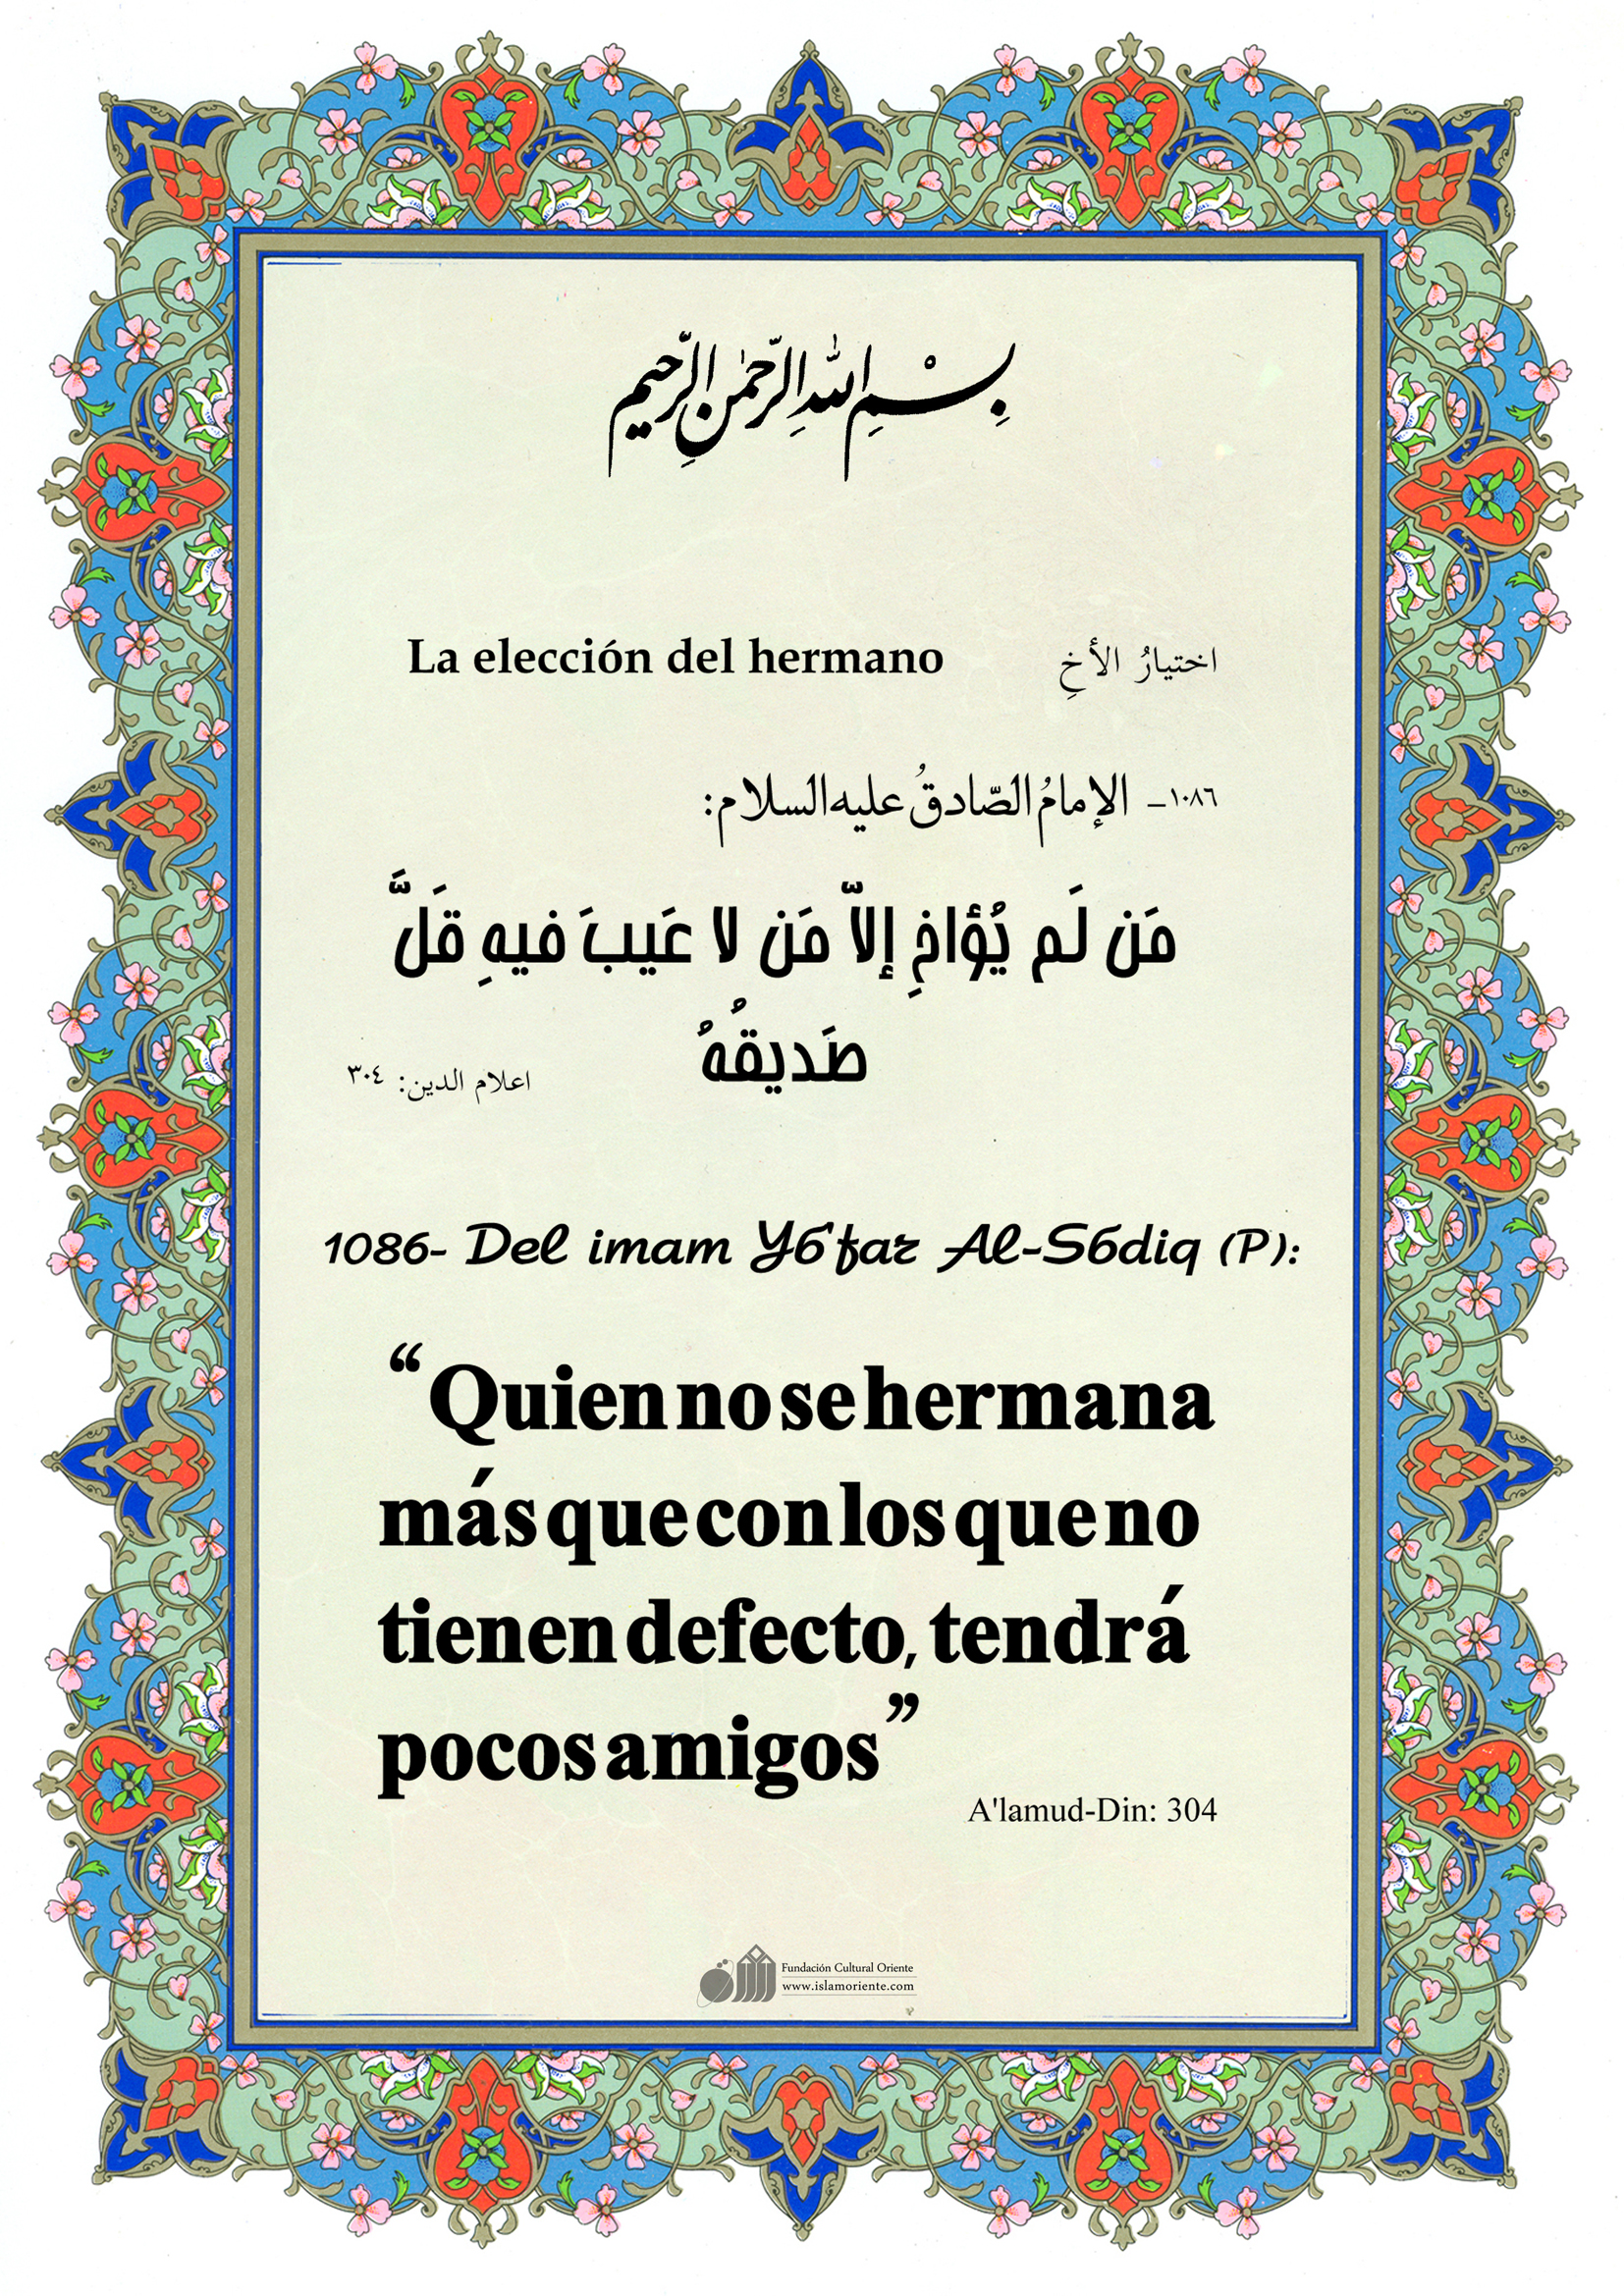 بِسْمِ اللهِ الرَّحْمٰنِ الرَّحِيمِ
La elección del hermano
اختيارُ الأخِ
١٠٨٦– الإمامُ الصّادقُ عليه السلام:
مَن لَم يُؤاخِ إلاّ مَن لا عَيبَ فيهِ قَلَّ
صَديقُهُ
اعلام الدين: ٣٠٤
1086- Del imam Yб'far Al-Sбdiq (P):
“Quien no se hermana
más que con los que no
tienen defecto, tendrá
pocos amigos”
A'lamud-Din: 304
Fundación Cultural Oriente
www.islamoriente.com